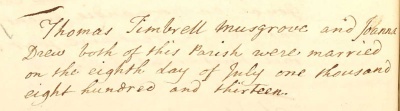 Thomas Timbrell Musgrove and Johanna
Drew both of this Parish were married
on the eighth day of July one thousand
eight hundred and thirteen.